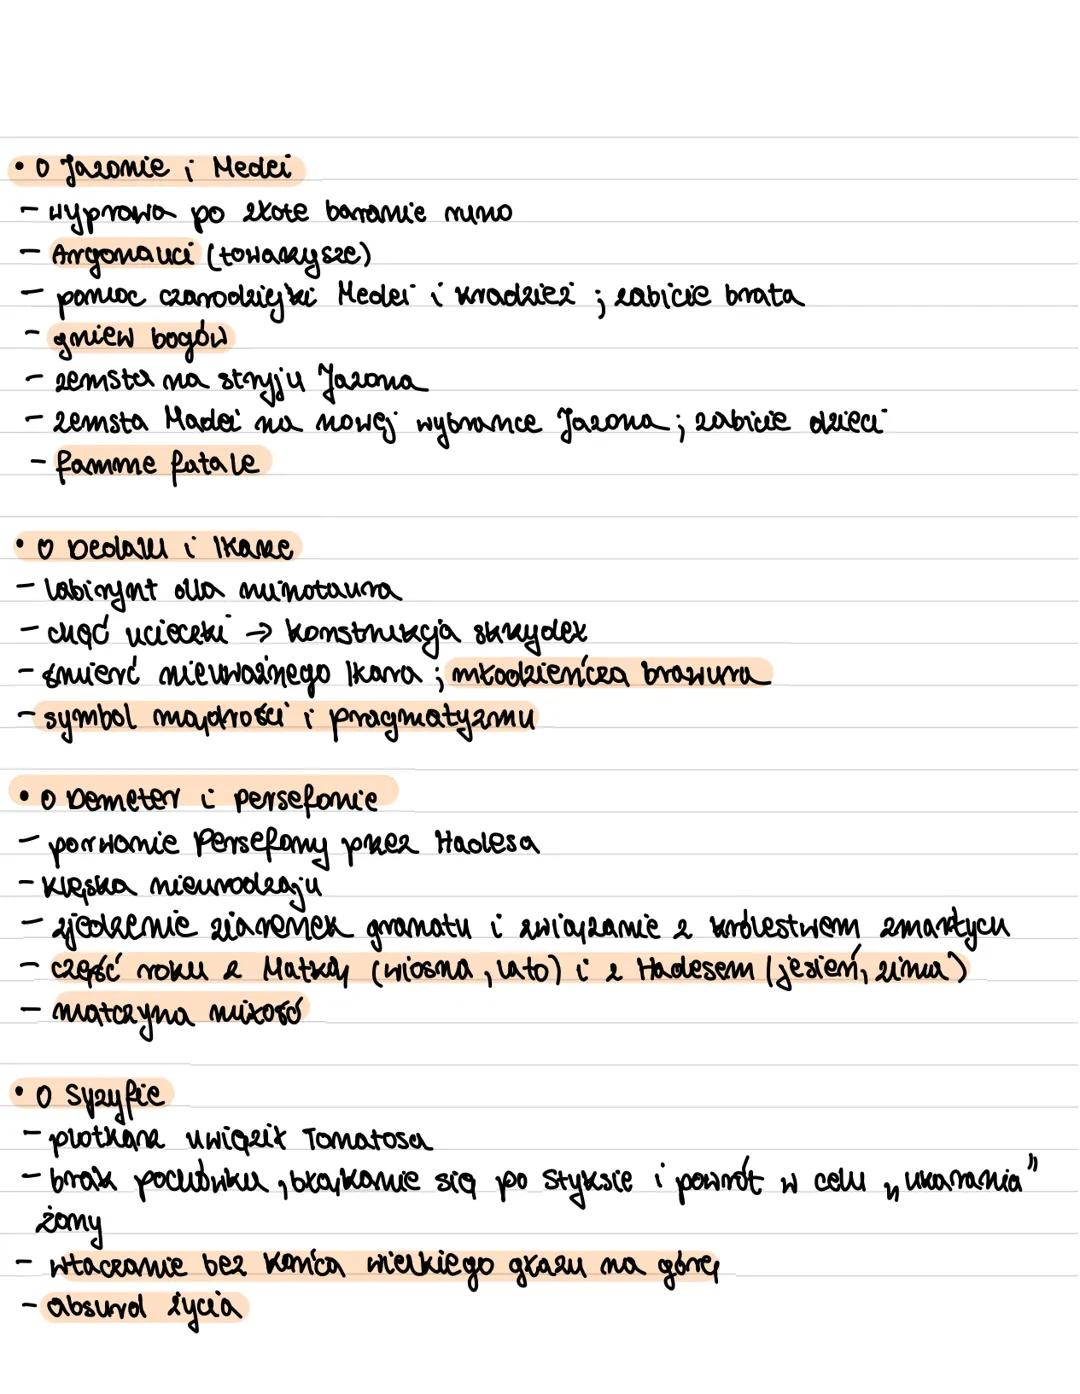 • o Jazonie i Medei
- wyprawa po złote baranie runo
- Argonauci (towarzysze)
- pomoc czarodziejki Medei i kradzież ; zabicie brata
- gniew bogów
- zemsta na stryju Jazona
- zemsta Madei na nowej wybrance Jazona ; zabicie dzieci
- famme fatale
• o Dedalu i Ikarze
- labirynt dla minotaura
- chęć ucieczki → konstrukcja skrzydeł
- śmierć nieuważnego Ikara ; młodzieńcza brawura
- symbol mądrości i pragmatyzmu
• o Demeter i persefonie
- porwanie Persefony przez Hadesa
- klęska nieurodzaju
- zjedzenie ziarenek granatu i związanie z królestwem zmarłych
- część roku z Matką (wiosna, lato) i z Hadesem (jesień, zima)
- matczyna miłość
• o Syzyfie
- plotkarz uwięził Tomatosa
- brak pochówku, błąkanie się po Styksie i powrót w celu „ukarania”
żony
- wtaczanie bez końca wielkiego głazu na górę
- absurd życia